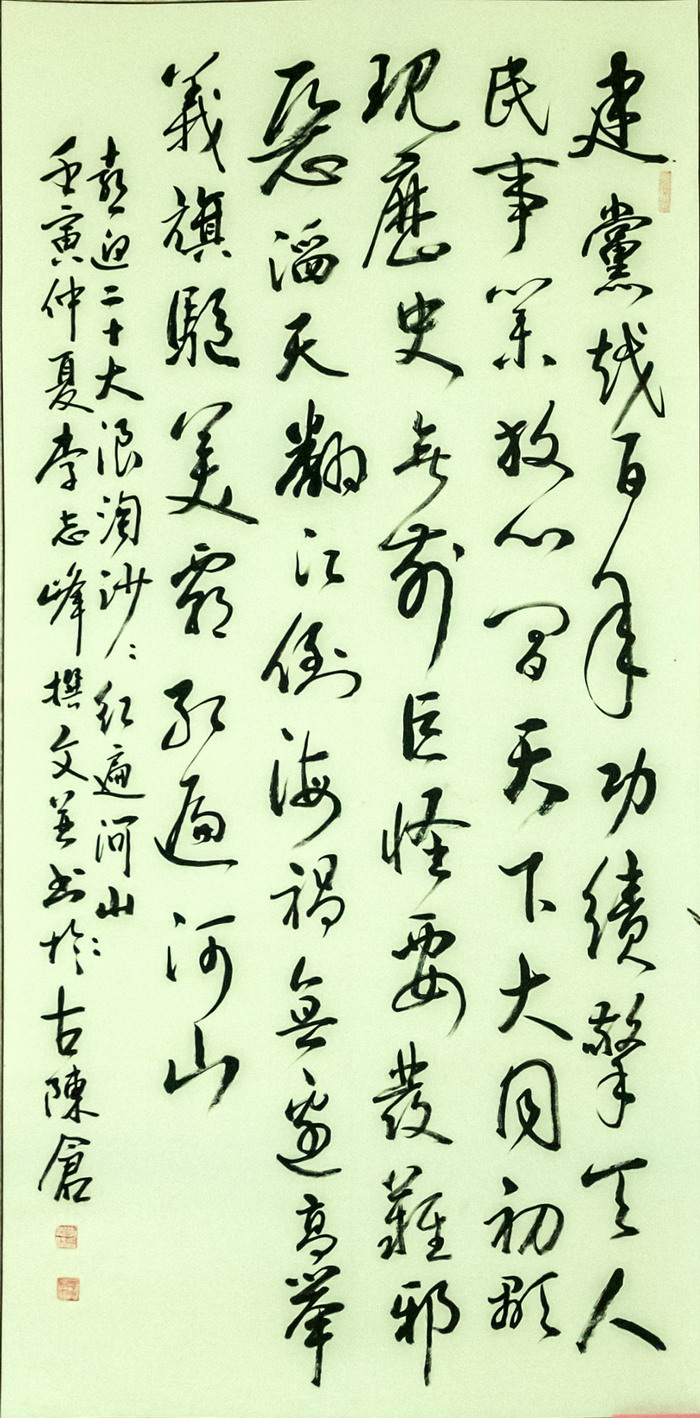 建黨越百年功績擎天人
民事業放心間天下大同初顯
現歷史無前巨怪要發難邪
惡滔天翻江倒海禍無邊高舉
義旗驅美霸紅遍河山
喜迎二十大浪淘沙：紅遍河山：
壬寅仲夏李志峰撰文并書於古陳倉